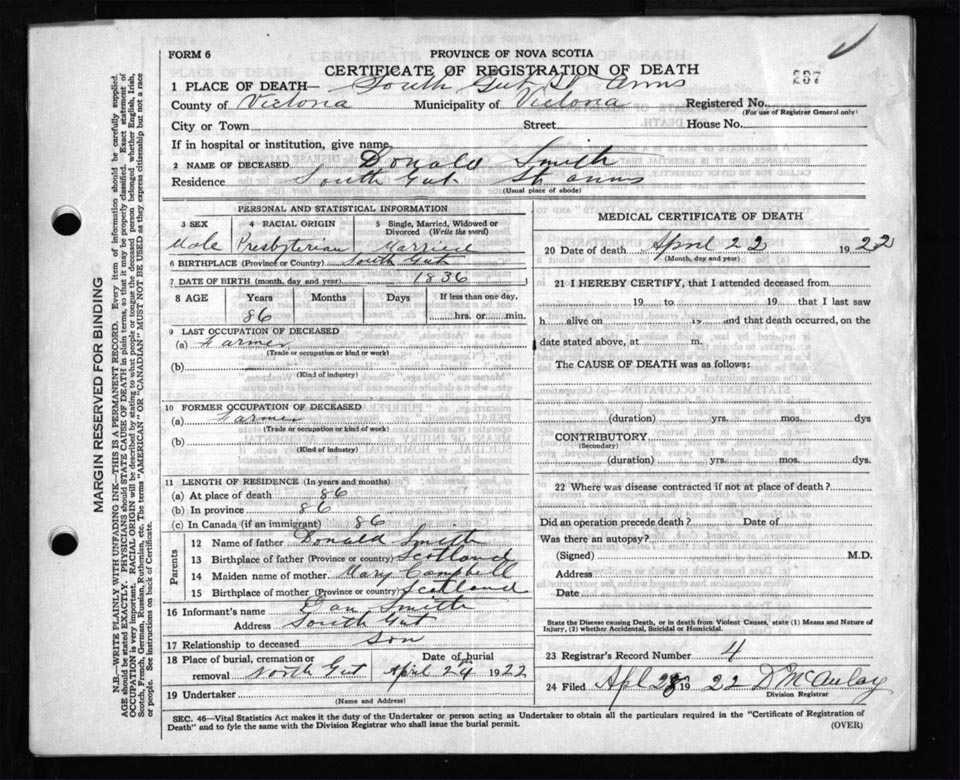 FORM 6
PROVINCE OF NOVA SCOTIA
CERTIFICATE OF REGISTRATION OF DEATH
237
1 PLACE OF DEATH— South Gut St Anns
County of Victoria Municipality of Victoria Registered No.
(For use of Registrar General only)
City or Town Street House No.
If in hospital or institution, give name
2 NAME OF DECEASED Donald Smith
Residence South Gut St anns
(Usual place of abode)
PERSONAL AND STATISTICAL INFORMATION
3 SEX 4 RACIAL ORIGIN 5 Single, Married, Widowed or Divorced (Write the word)
Male Presbyterian Married
6 BIRTHPLACE (Province or Country) South Gut
7 DATE OF BIRTH (month, day and year) 1836
8 AGE Years Months Days If less than one day,
86 hrs. or min.
9 LAST OCCUPATION OF DECEASED
(a) Farmer
(Trade or occupation or kind or work)
(b)
(Kind of industry)
10 FORMER OCCUPATION OF DECEASED
(a) Farmer
(Trade or occupation or kind of work)
(b)
(Kind of industry)
11 LENGTH OF RESIDENCE (In years and months)
(a) At place of death 86
(b) In province 86
(c) In Canada (if an immigrant) 86
Parents
12 Name of father Donald Smith
13 Birthplace of father (Province or country) Scotland
14 Maiden name of mother Mary Campbell
15 Birthplace of mother (Province or country) Scotland
16 Informant's name Dan Smith
Address South Gut
17 Relationship to deceased Son
18 Place of burial, cremation or removal North Gut Date of burial April 24 1922
19 Undertaker
(Name and Address)
MEDICAL CERTIFICATE OF DEATH
20 Date of death April 22 1922
(Month, day and year)
21 I HEREBY CERTIFY, that I attended deceased from
19 to 19 that I last saw
h alive on 19 and that death occurred, on the
date stated above, at m.
The CAUSE OF DEATH was as follows:
(duration) yrs. mos. dys
CONTRIBUTORY
(Secondary)
(duration) yrs. mos. dys.
22 Where was disease contracted if not at place of death?
Did an operation precede death? Date of
Was there an autopsy?
(Signed) M.D.
Address
Date
State the Disease causing Death, or in death from Violent Causes, state (1) Means and Nature of
Injury, (2) whether Accidental, Suicidal or Homicidal.
23 Registrar's Record Number 4
24 Filed Apl 28 1922 D McAulay
Division Registrar
SEC. 46—Vital Statistics Act makes it the duty of the Undertaker or person acting as Undertaker to obtain all the particulars required in the "Certificate of Registration of
Death" and to fyle the same with the Division Registrar who shall issue the burial permit.
(OVER)
MARGIN RESERVED FOR BINDING
N.B.—WRITE PLAINLY WITH UNFADING INK—THIS IS A PERMANENT RECORD. Every item of information should be carefully supplied.
AGE should be stated EXACTLY. PHYSICIANS should STATE CAUSE OF DEATH in plain terms, so that it may be properly classified. Exact statement of
OCCUPATION is very important. RACIAL ORIGIN will be described by stating to what people or tongue the deceased person belonged whether English, Irish,
Scotch, French, German, Russian, Ruthenian, etc. The terms "AMERICAN" OR "CANADIAN" MUST NOT BE USED as they express citizenship but not a race
or people. See instructions on back of Certificate.